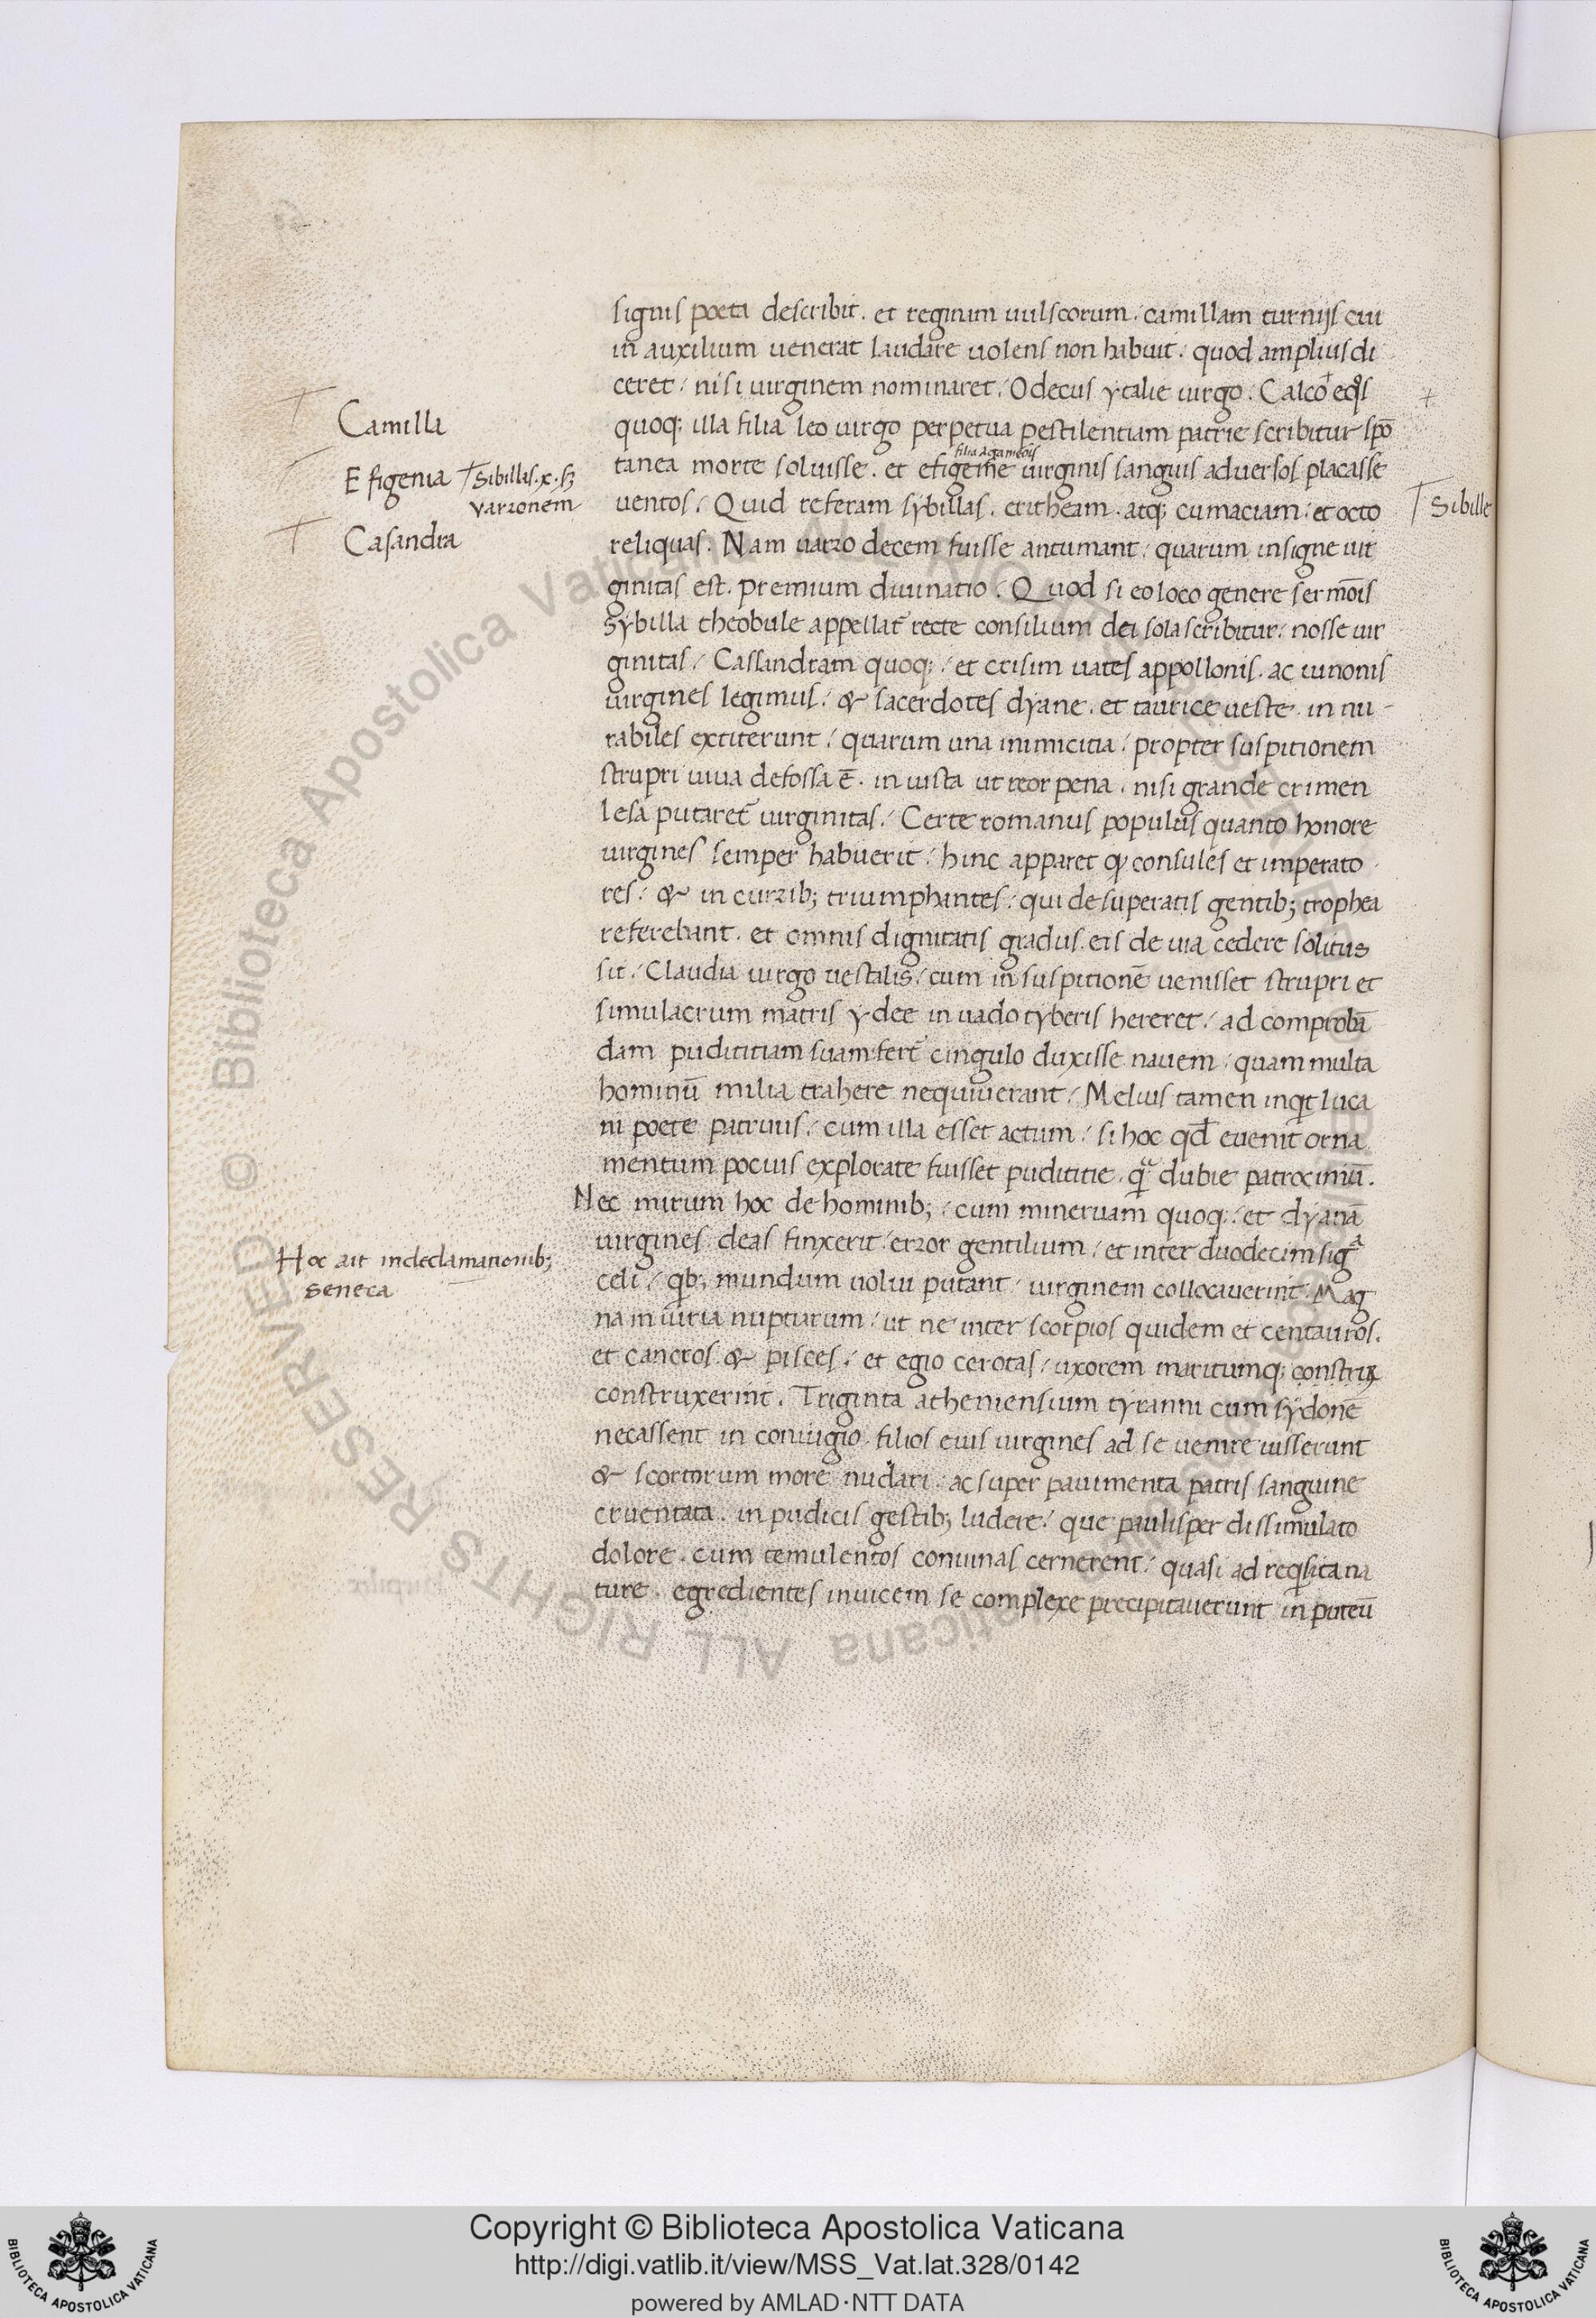 signis poeta describit. et reginam uulscorum / camillam turnijs cui
in auxilium uenerat laudare uolens non habuit. quod amplius di
ceret / nisi uirginem nominaret / O decus ytalie uirgo.
quoq; illa filia leo uirgo perpetua pestilentiam patrie scribitur spō
filia
tanea morte soluisse. et efigenie uirginis sanguis aduersos placasse
uentos / Quid referam sybillas. eritheam. atq; cumaciam / et octo
reliquas. Nam uarro decem fuisse autumant / quarum insigne uir
ginitas est. premium diuinatio. Quod si eo loco genere sermōis
Sybilla theobule appellat̄ recte consilium dei sola scribitur / nosse uir
ginitas / Cassandram quoq; / et crisim uates appollonis. ac iunonis
uirgines legimus / & sacerdotes dyane. et taurice ueste. in nu-
rabiles extiterunt / quarum una inimicitia / propter suspitionem
strupri uiua defossa ē. in iusta ut reor pena. nisi grande crimen
lesa putaret̄ uirginitas / Certe romanus populus quanto honore
uirgines semper habuerit / hinc apparet ꝙ consules et imperato
res / & in currib; triumphantes / qui de superatis gentib; trophea
referebant. et omnis dignitatis gradus. eis de uia cedere solitus
sit / Claudia uirgo uestalis / cum in suspitionē uenisset strupri et
simulacrum matris ydee in uado tyberis hereret / ad comprobā
dam pudititiam suam fert̄ cingulo duxisse nauem / quam multa
hominū milia trahere nequiuerant / Melius tamen inqt luca
ni poete patruus / cum illa esset actum / si hoc qd̄ euenit orna
mentum pocius explorate fuisset pudititie. q̄ᵃ dubie patrociniū.
Nec mirum hoc de hominib; / cum mineruam quoq; / et dyanā
uirgines deas finxerit / error gentilium / et inter duodecim sigᵃ
celi / qb; mundum uolui putant / uirginem collocauerint. Mag
na iniuria nupturum / ut ne inter scorpios quidem et centauros.
et cancros & pisces / et egio cerotas / uxorem maritumq; constrix
construxerint. Triginta atheniensium tyranni cum sydonē
necassent in conuigio. filios eius uirgines ad se uenire iusserunt
& scortorum more nudari / ac super pauimenta patris sanguine
cruentata. in pudicis gestib; ludere / que paulisper dissimulato
dolore. cum temulentos conuiuas cernerent / quasi ad reqsita na
ture. egredientes inuicem se complexe precipitauerunt in puteū
Camilla
Efigenia
Sibillas. x. s
Varronem
Casandra
Sibille
Hoc ait in declamationib;
Seneca
© Biblioteca Apostolica Vaticana ALL RIGHTS RESERVED
Copyright © Biblioteca Apostolica Vaticana
http://digi.vatlib.it/view/MSS_Vat.lat.328/0142
powered by AMLAD·NTT DATA
BIBLIOTECA APOSTOLICA VATICANA
BIBLIOTECA APOSTOLICA VATICANA